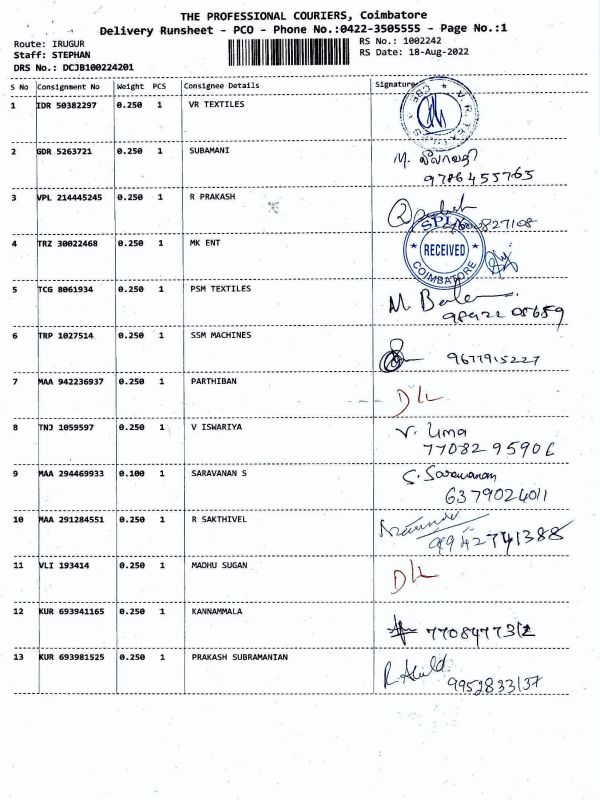 THE PROFESSIONAL COURIERS, Coimbatore
Delivery Runsheet - PCO - Phone No.:0422-3505555 - Page No.:1
Route: IRUGUR
RS No.: 1002242
Staff: STEPHAN
RS Date: 18-Aug-2022
DRS No.: DCJB100224201
S No Consignment No Weight PCS Consignee Details Signature
1 IDR 50382297 0.250 1 VR TEXTILES
2 GDR 5263721 0.250 1 SUBAMANI M.
9786455765
3 VPL 214445245 0.250 1 R PRAKASH
4 TRZ 30022468 0.250 1 MK ENT
SPIN
RECEIVED
COIMBATORE
5 TCG 8061934 0.250 1 PSM TEXTILES M
6 TRP 1027514 0.250 1 SSM MACHINES 9677915227
7 MAA 942236937 0.250 1 PARTHIBAN
8 TNJ 1059597 0.250 1 V ISWARIYA V. Uma
9 MAA 294469933 0.100 1 SARAVANAN S S. Saravanan
6379024011
10 MAA 291284551 0.250 1 R SAKTHIVEL
9942741388
11 VLI 193414 0.250 1 MADHU SUGAN
12 KUR 693941165 0.250 1 KANNAMMALA
13 KUR 693981525 0.250 1 PRAKASH SUBRAMANIAN
9952833137